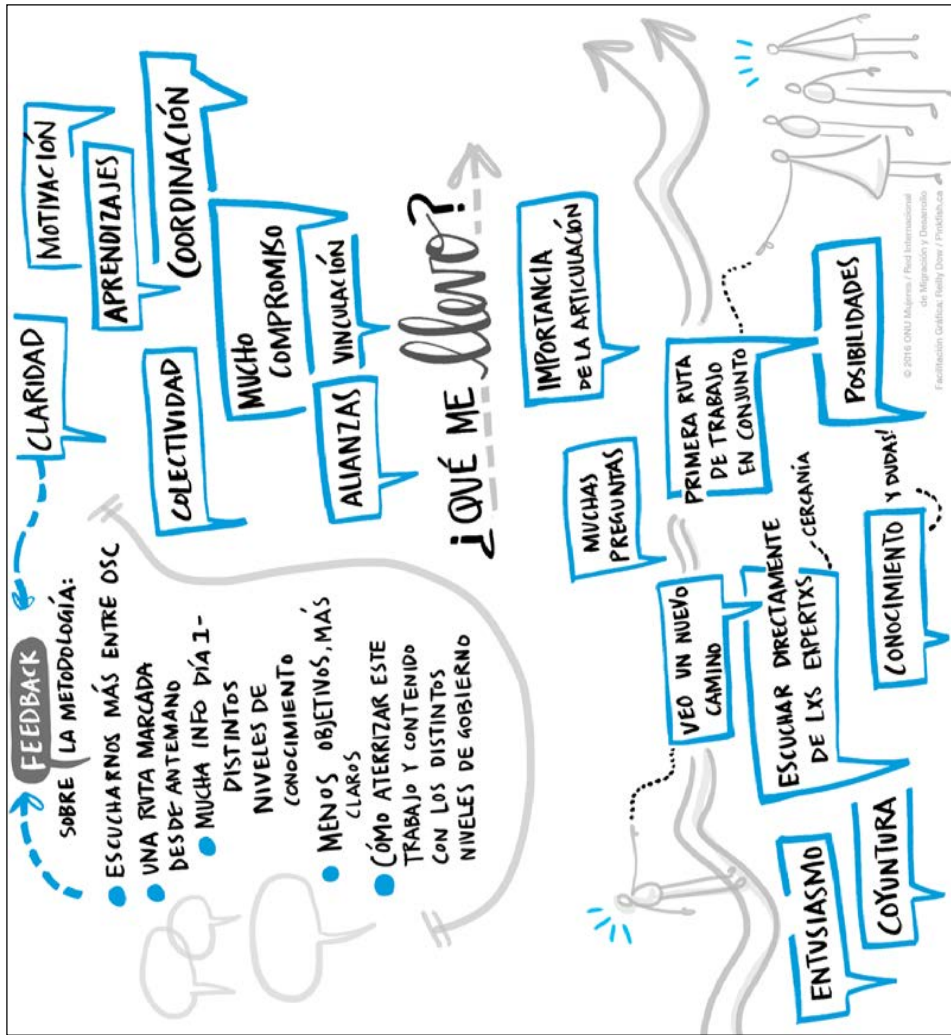 FEEDBACK
SOBRE LA METODOLOGÍA:
ESCUCHARNOS MÁS ENTRE OSC
UNA RUTA MARCADA
DESDE ANTEMANO
MUCHA INFO DÍA 1-
DISTINTOS
NIVELES DE
CONOCIMIENTO
MENOS OBJETIVOS, MÁS
CLAROS
CÓMO ATERRIZAR ESTE
TRABAJO Y CONTENIDO
CON LOS DISTINTOS
NIVELES DE GOBIERNO
CLARIDAD
MOTIVACIÓN
APRENDIZAJES
COORDINACIÓN
COLECTIVIDAD
MUCHO
COMPROMISO
ALIANZAS
VINCULACIÓN
¿QUÉ ME llevo?
MUCHAS
PREGUNTAS
IMPORTANCIA
DE LA ARTICULACIÓN
VEO UN NUEVO
CAMINO
PRIMERA RUTA
DE TRABAJO
EN CONJUNTO
ESCUCHAR DIRECTAMENTE
DE LXS EXPERTXS
CERCANÍA
POSIBILIDADES
ENTUSIASMO
COYUNTURA
CONOCIMIENTO
Y DUDAS!
© 2016 ONU Mujeres / Red Internacional
de Migración y Desarrollo
Facilitación Gráfica: Reilly Dow / Pinkfish.ca